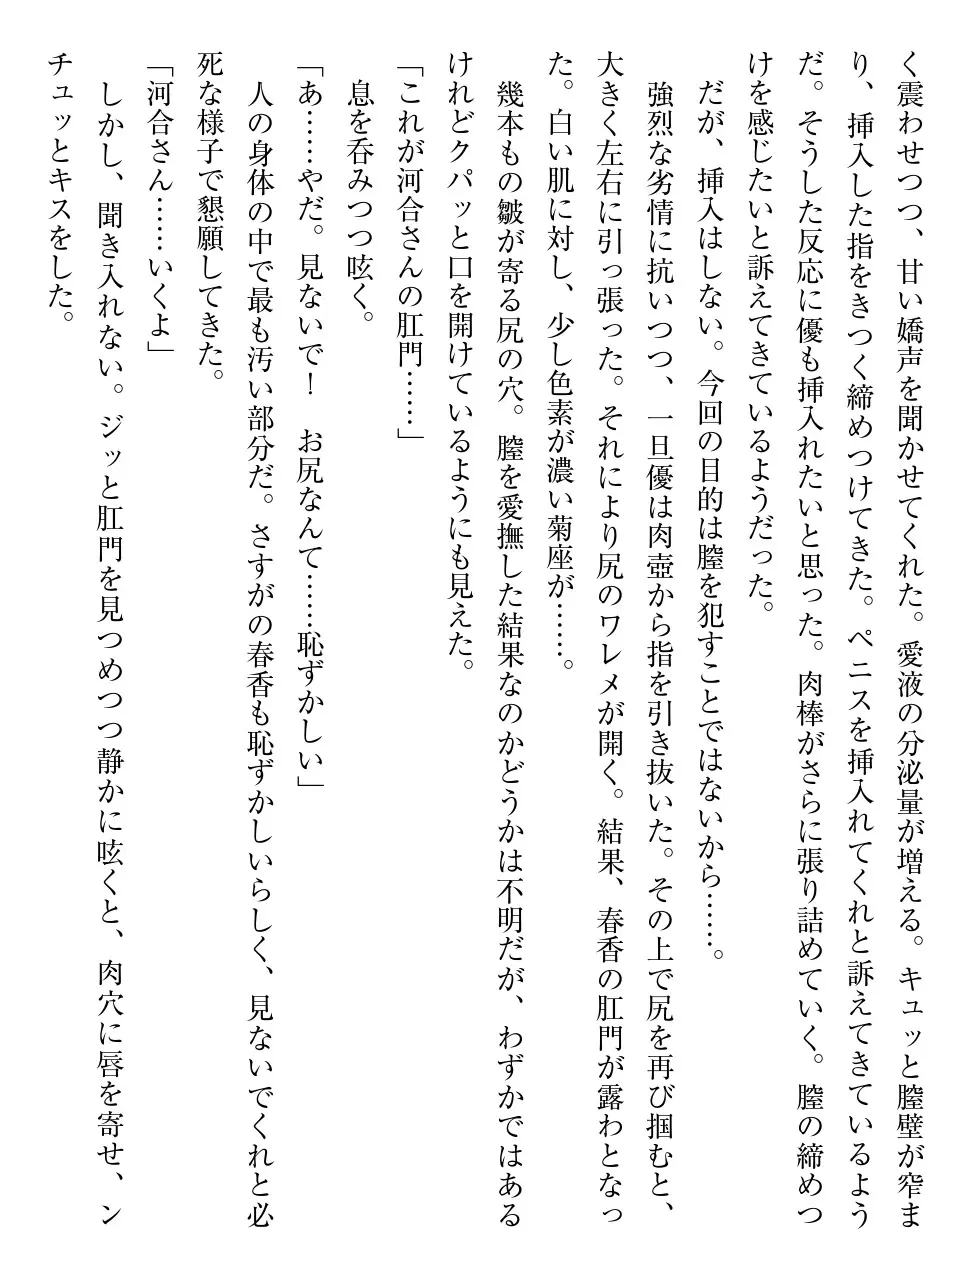 く震わせつつ、甘い嬌声を聞かせてくれた。愛液の分泌量が増える。キュッと膣壁が窄ま
り、挿入した指をきつく締めつけてきた。ペニスを挿入れてくれと訴えてきているよう
だ。そうした反応に優も挿入れたいと思った。肉棒がさらに張り詰めていく。膣の締めつ
けを感じたいと訴えてきているようだった。
だが、挿入はしない。今回の目的は膣を犯すことではないから……。
強烈な劣情に抗いつつ、一旦優は肉壺から指を引き抜いた。その上で尻を再び掴むと、
大きく左右に引っ張った。それにより尻のワレメが開く。結果、春香の肛門が露わとなっ
た。白い肌に対し、少し色素が濃い菊座が……。
幾本もの皺が寄る尻の穴。膣を愛撫した結果なのかどうかは不明だが、わずかではある
けれどクパッと口を開けているようにも見えた。
「これが河合さんの肛門……」
息を呑みつつ呟く。
「あ……やだ。見ないで！　お尻なんて……恥ずかしい」
人の身体の中で最も汚い部分だ。さすがの春香も恥ずかしいらしく、見ないでくれと必
死な様子で懇願してきた。
「河合さん……いくよ」
しかし、聞き入れない。ジッと肛門を見つめつつ静かに呟くと、肉穴に唇を寄せ、ン
チュッとキスをした。